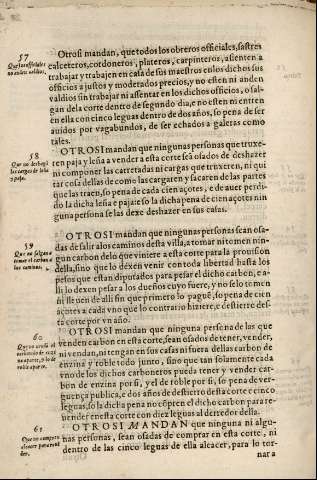 57
Que los officiales
no anden valdios.
Otrosi mandan, que todos los obreros officiales, sastres
calceteros, cordoneros, plateros, carpinteros, assienten a
trabajar y trabajen en casa de sus maestros en los dichos sus
officios a justos y moderados precios, y no esten ni anden
valdios sin trabajar ni assentar en los dichos officios, o sal-
gan dela corte dentro de segundo dia, e no esten ni entren
en ella con cinco leguas dentro de dos años, so pena de ser
auidos por vagabundos, de ser echados a galeras como
tales.
58
Que no deshagã
las cargas de leña
y paja.
OTROSI mandan que ningunas personas que truxe-
ren paja y leña a vender a esta corte sea osados de deshazer
ni componer las carretadas ni cargas que truxeren, ni qui
tar cosa dellas de como las cargaren y sacaren de las partes
que las traen, so pena de cada cien açotes, e de auer perdi-
do la dicha leña e paja: e so la dicha pena de cien açotes nin
guna persona se las dexe deshazer en sus casas.
59
Que no salgan a
tomar el carbon a
los caminos.
OTROSI mandan que ningunas personas sean osa-
das de salir alos caminos desta villa, a tomar ni tomen nin-
gun carbon delo que viniere a esta corte para la prouision
della, sino que lo dexen venir con toda libertad hasta los
pesos que estan diputados para pesar el dicho carbon, e a-
lli lo dexen pesar a los dueños cuyo fuere, y no selo tomen
ni lleuen de alli sin que primero lo paguẽ, so pena de cien
açotes a cada vno que lo contrario hiziere, e destierro des-
ta corte por vn año.
60
aparte, y lo de
roble aparte.
OTROSI mandan que ninguna persona de las que
venden carbon en esta corte, sean osados de tener, vender,
ni vendan, ni tengan en sus casas ni fuera dellas carbon de
enzina y roble todo junto, sino que tan solamente cada
vno de los dichos carboneros pueda tener y vender car-
bon de enzina por si, y el de roble por si, so pena de ver-
guença publica, e dos años de destierro desta corte e cinco
leguas, so la dicha pena no cõpren el dicho carbon para re-
uender en esta corte con diez leguas al derredor della.
61
Que no compren
alcacer para reuẽ
der.
OTROSI MANDAN que ninguna ni algu-
nas personas, sean osadas de comprar en esta corte, ni
dentro de las cinco leguas de ella alcacer, para lo tor-
nar a